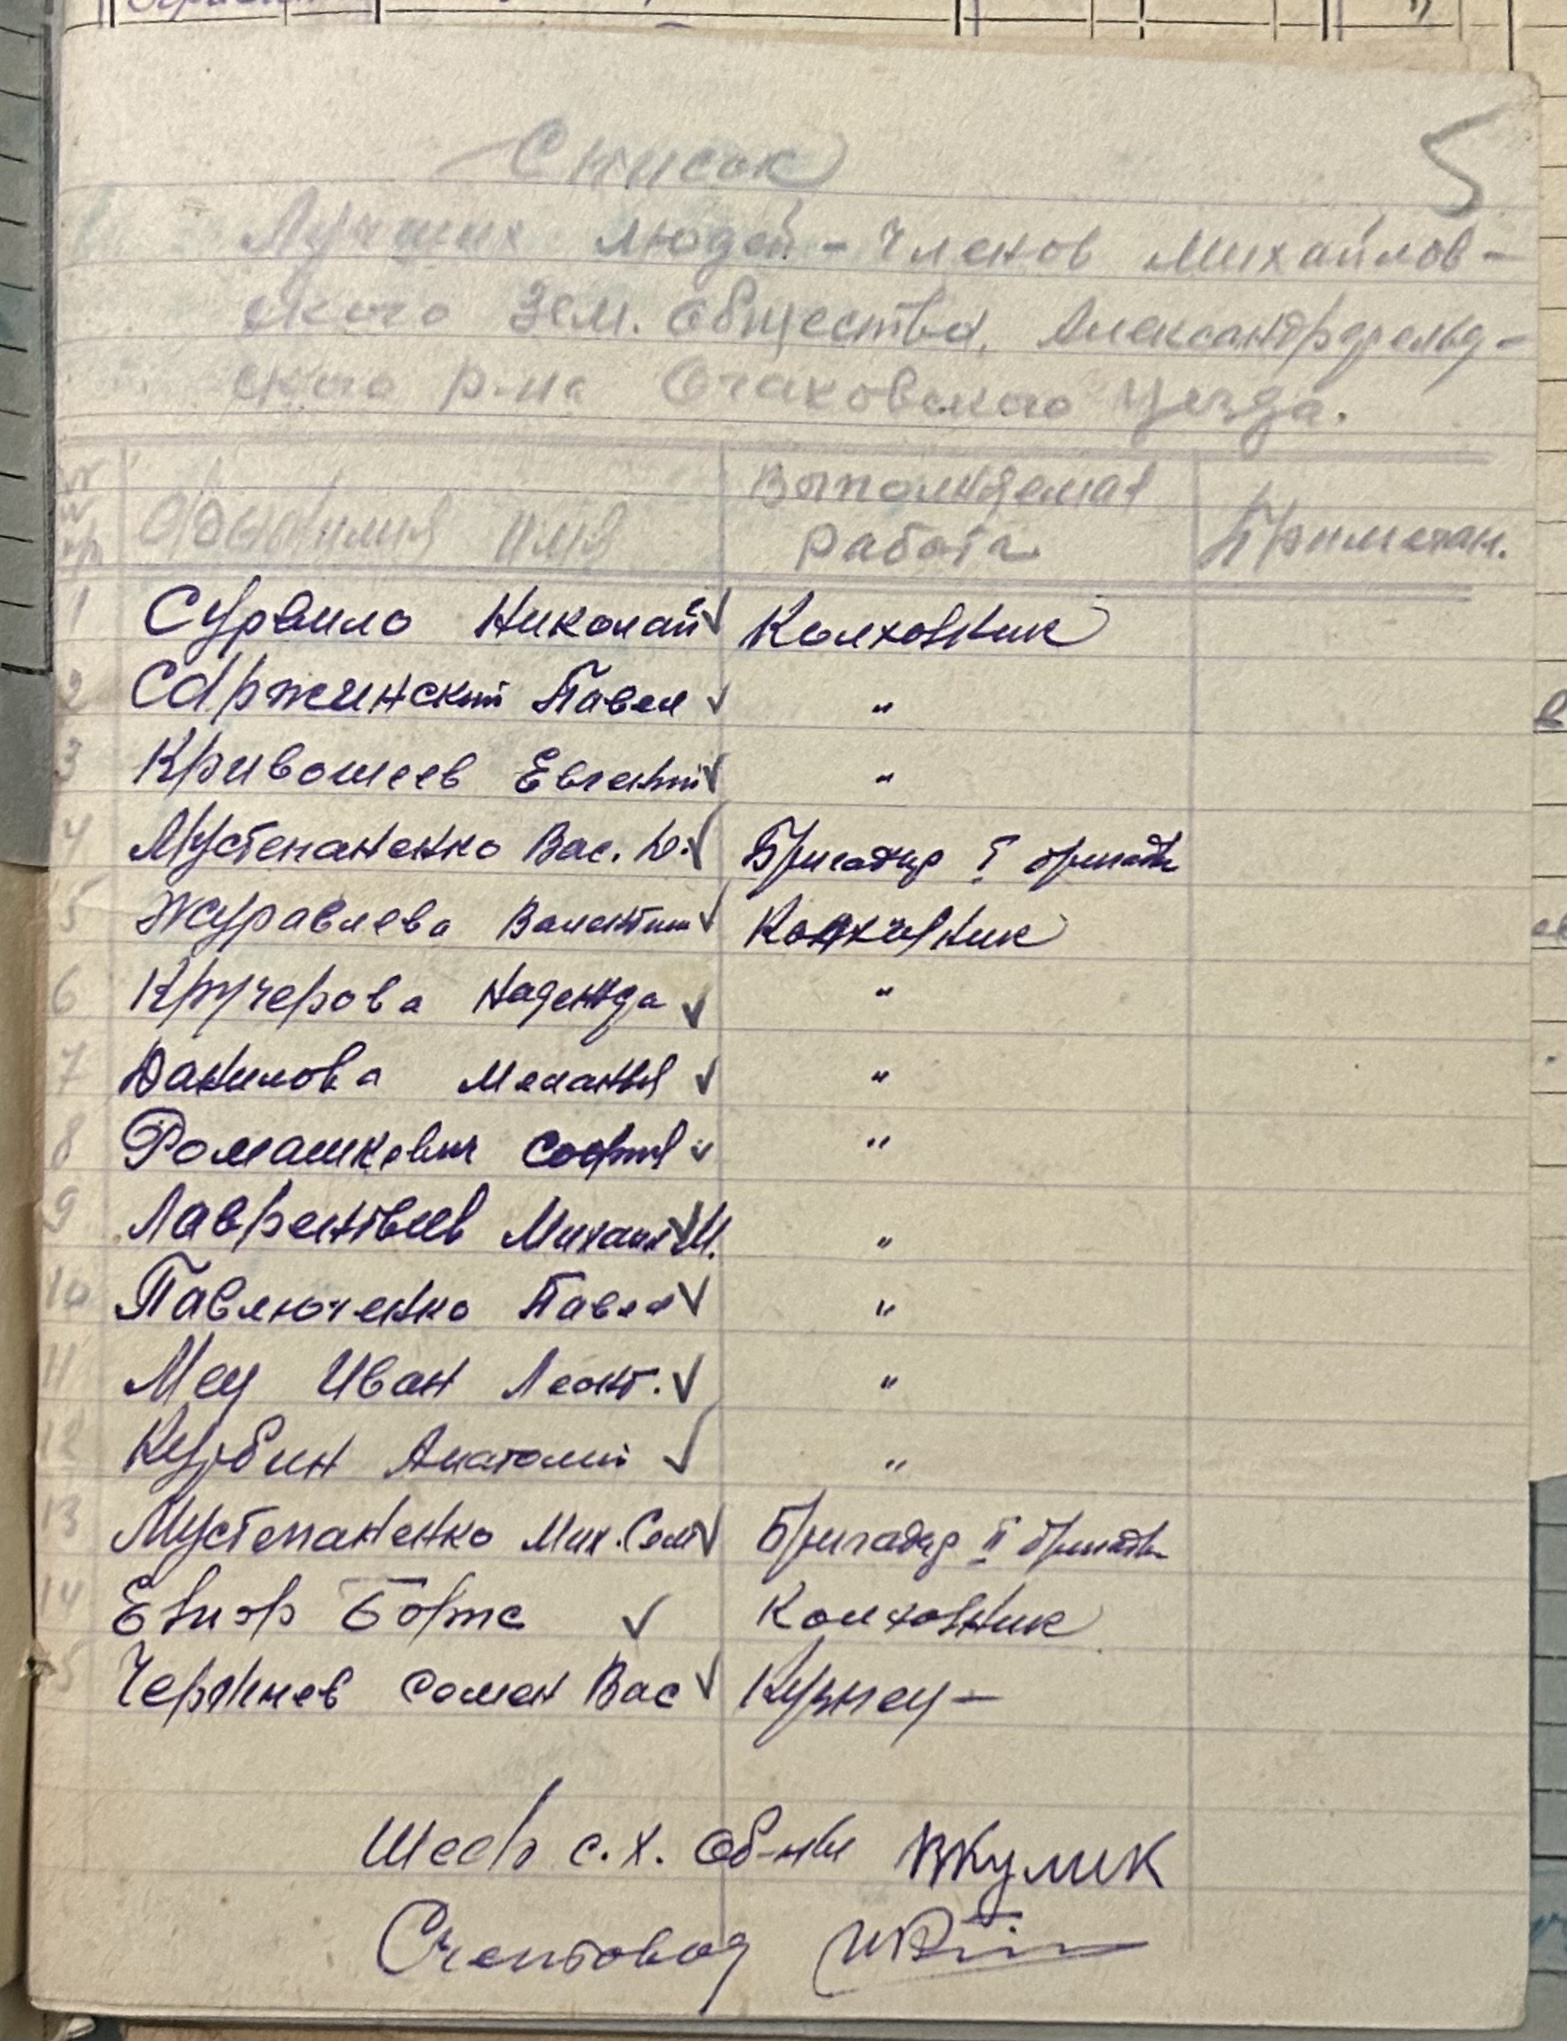 5
Список
Лучших людей - членов Михайлов-
ского зем. общества, Александрфельд-
ского р-на Очаковского уезда.
Фамилия имя Выполняемая работа Примечан.
1 Сурвило Николай ✓ Колхозник
2 Саржинский Павел ✓ "
3 Кривошеев Евгений ✓ "
4 Мустепаненко Вас. Д. ✓ Бригадир I бригады
5 Журавлева Валентин ✓ Колхозник
6 Кручерова Надежда ✓ "
7 Данилова Мелания ✓ "
8 Ромашкевич София ✓ "
9 Лаврентьев Михаил М. ✓ "
10 Павлюченко Павел ✓ "
11 Мец Иван Леонт. ✓ "
12 Курбин Анатолий ✓ "
13 Мустепаненко Мих. Сем ✓ Бригадир II бригады
14 Борис ✓ Колхозник
15 Семен Вас ✓ Кузнец -
Шеф с.х. об-ны ВКулик
Счетовод